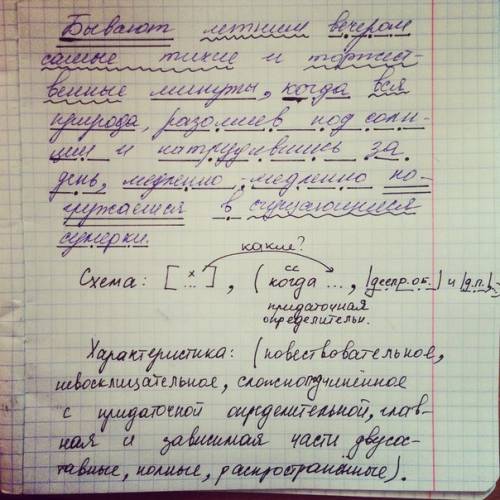 Бывают летним вечером
самые тихие и торжест-
венные минуты, когда вся
природа, разомлев под солн-
цем и натрудившись за
день, медленно-медленно по-
гружается в сгущающиеся
сумерки.
какие?
Схема: [ ˣ... ], ( когда ..., |деепр.об.| и |д.п.|
сс
придаточная
определительн.
Характеристика: (повествовательное,
невосклицательное, сложноподчинённое
с придаточной определительной, глав-
ная и зависимая части двусос-
тавные, полные, распространённые).